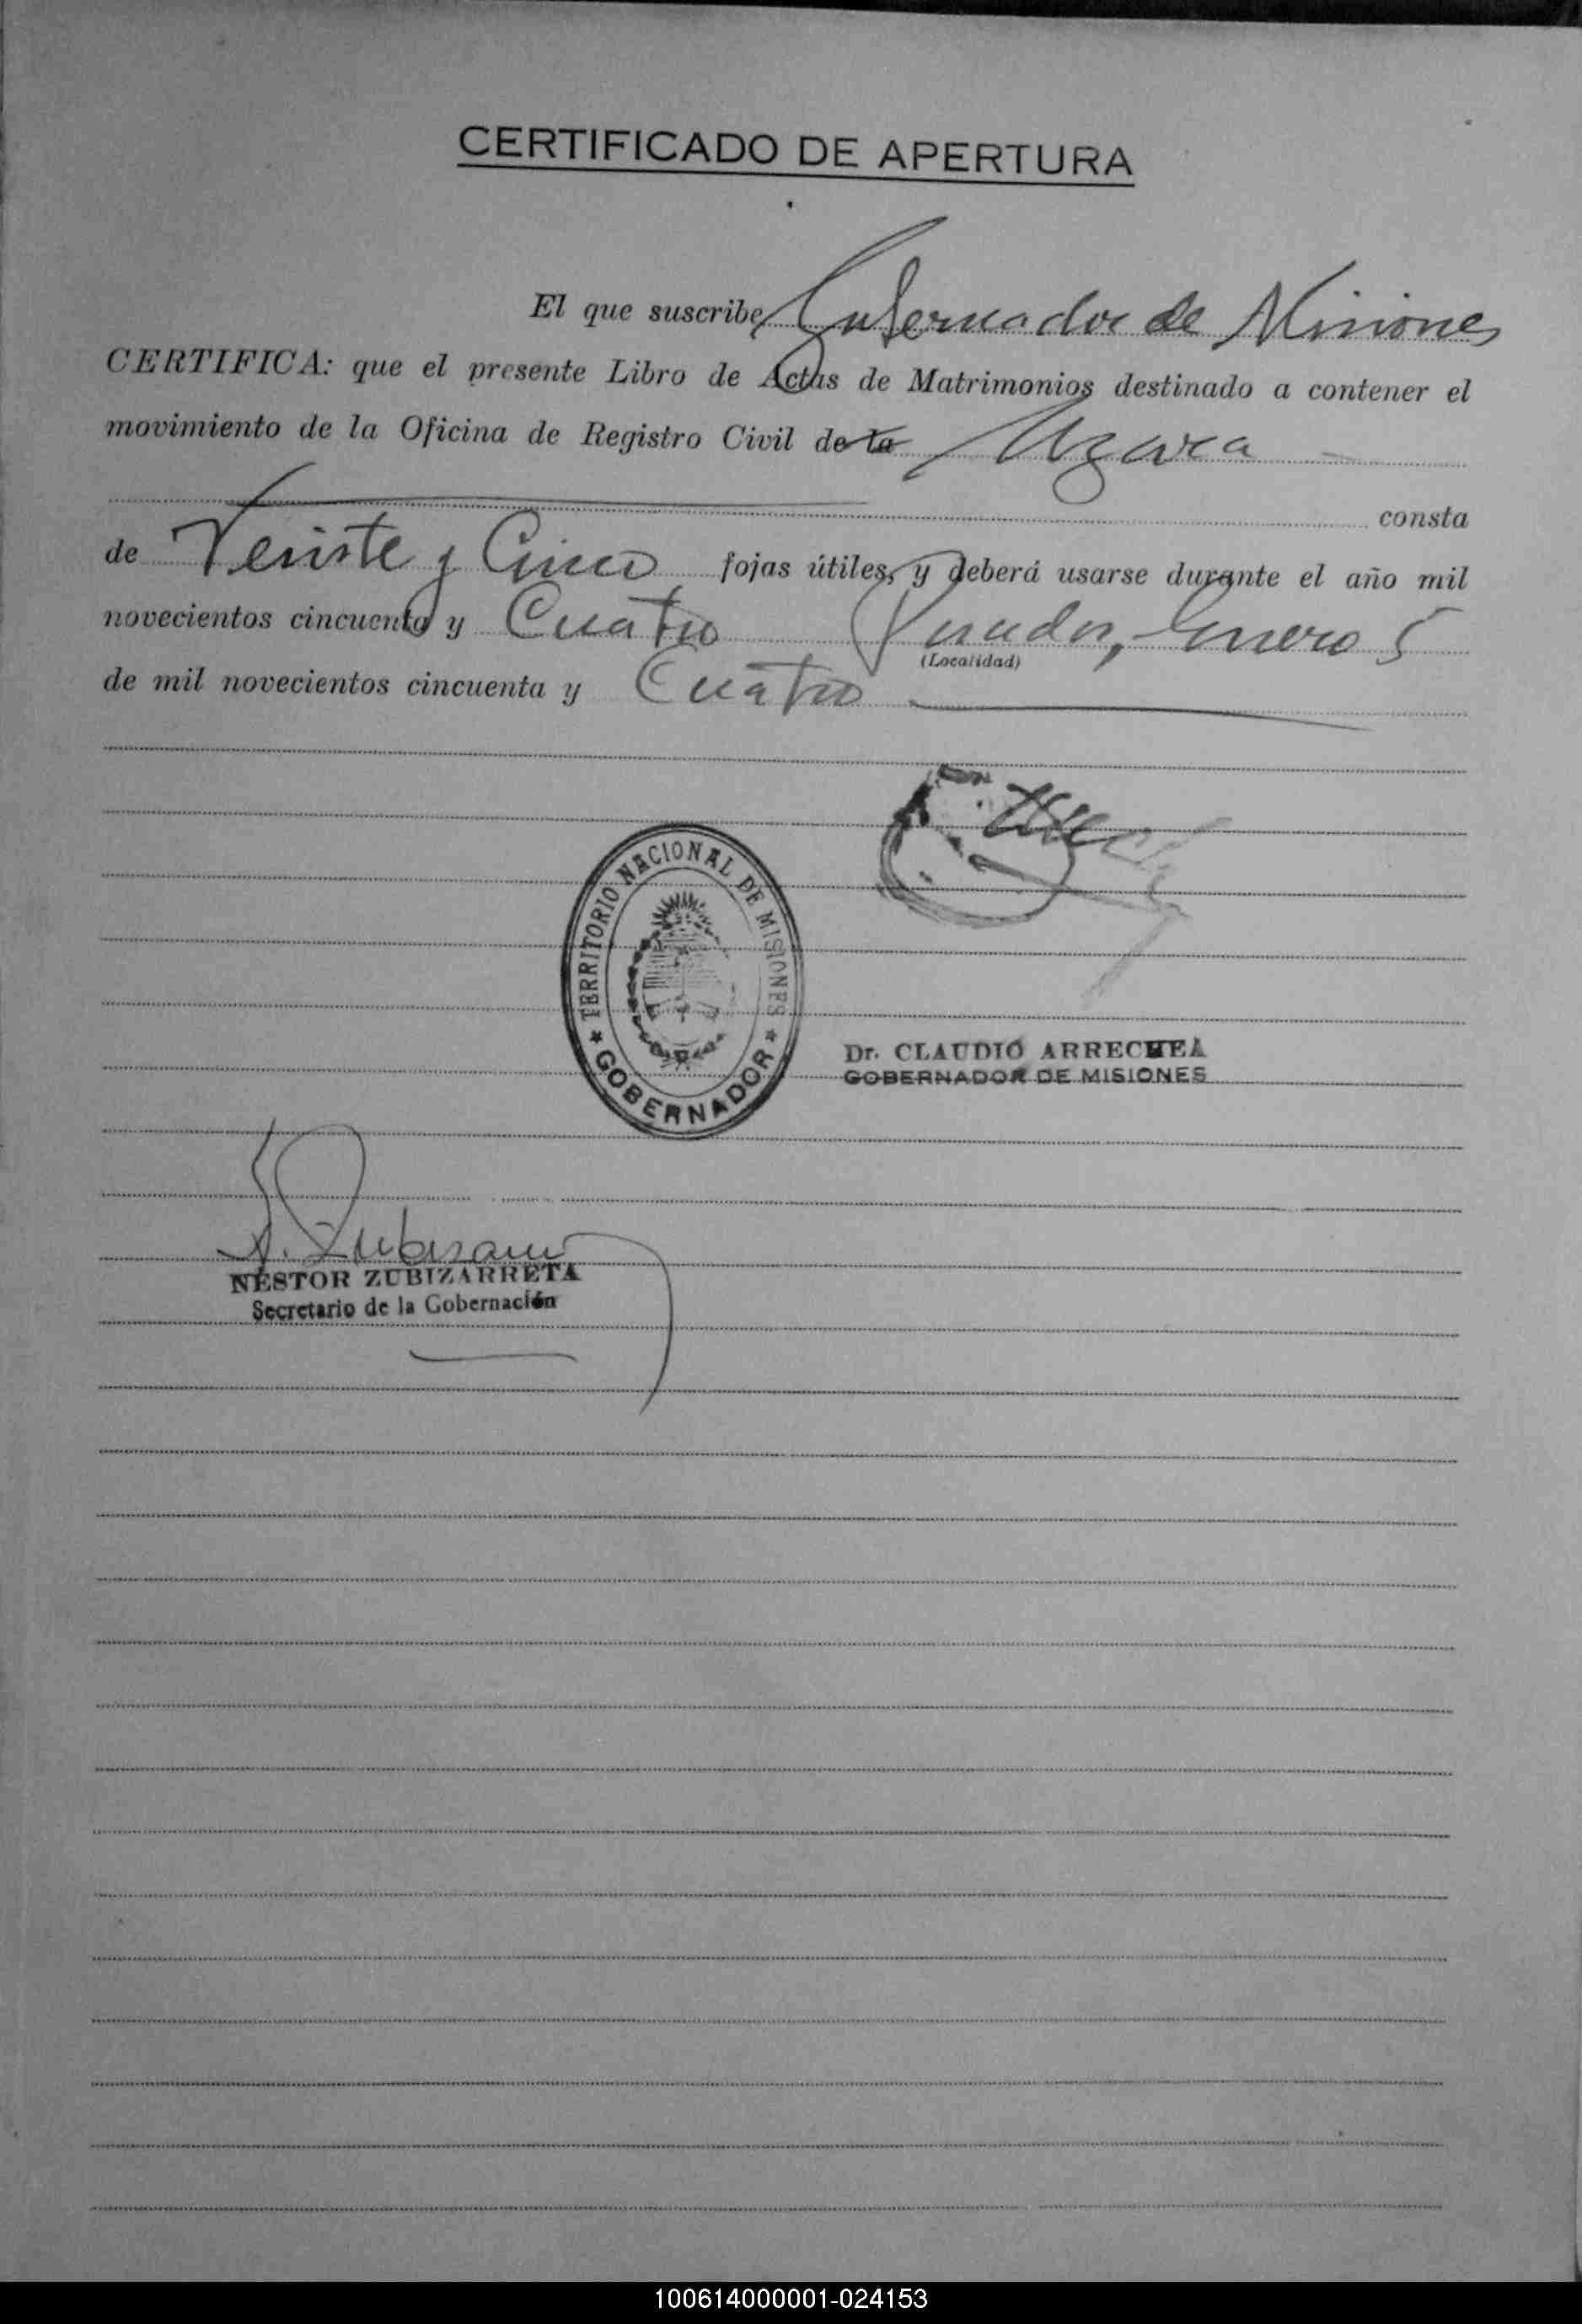 CERTIFICADO DE APERTURA
El que suscribe Gobernador de Misiones
CERTIFICA: que el presente Libro de Actas de Matrimonios destinado a contener el
movimiento de la Oficina de Registro Civil de la Azara
consta
de Veinte y Cinco fojas útiles, y deberá usarse durante el año mil
novecientos cincuenta y Cuatro Posadas, Enero 5
(Localidad)
de mil novecientos cincuenta y Cuatro
TERRITORIO NACIONAL DE MISIONES
★ GOBERNADOR ★
Dr. CLAUDIO ARRECHEA
GOBERNADOR DE MISIONES
NÉSTOR ZUBIZARRETA
Secretario de la Gobernación
100614000001-024153